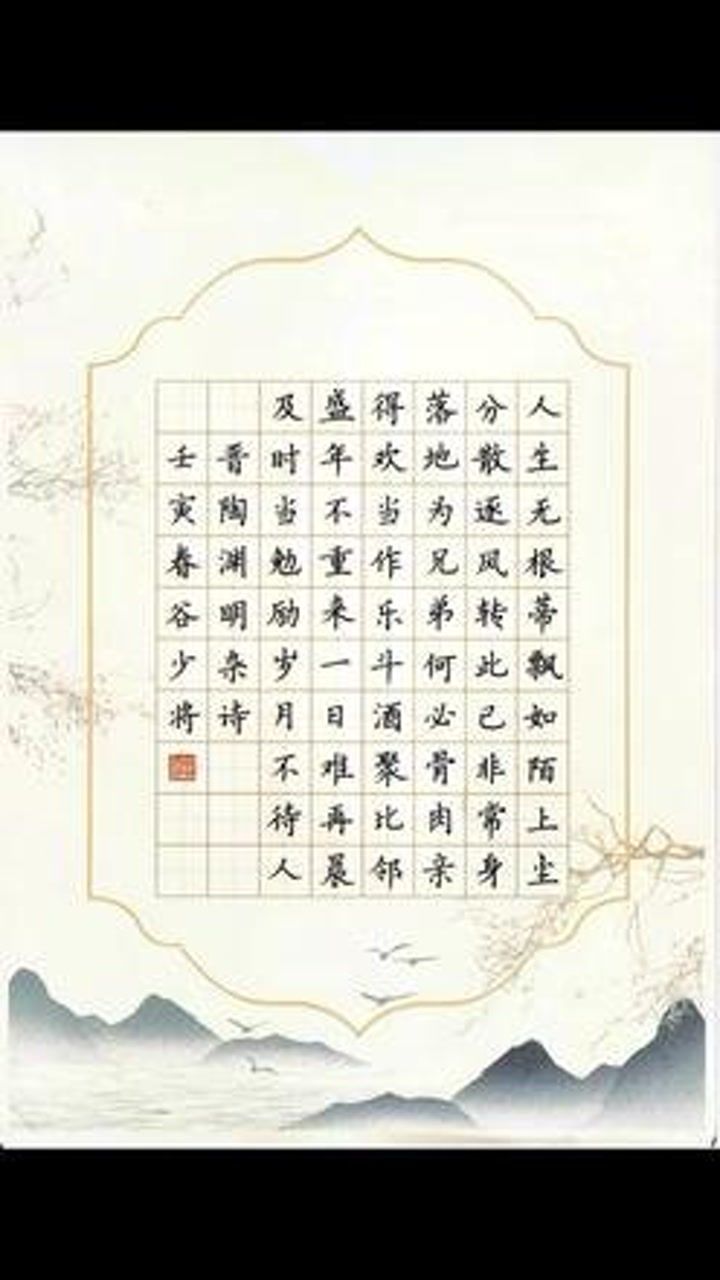 人生无根蒂飘如陌上尘
分散逐风转此已非常身
落地为兄弟何必骨肉亲
得欢当作乐斗酒聚比邻
盛年不重来一日难再晨
及时当勉励岁月不待人
晋陶渊明杂诗
壬寅春谷少将